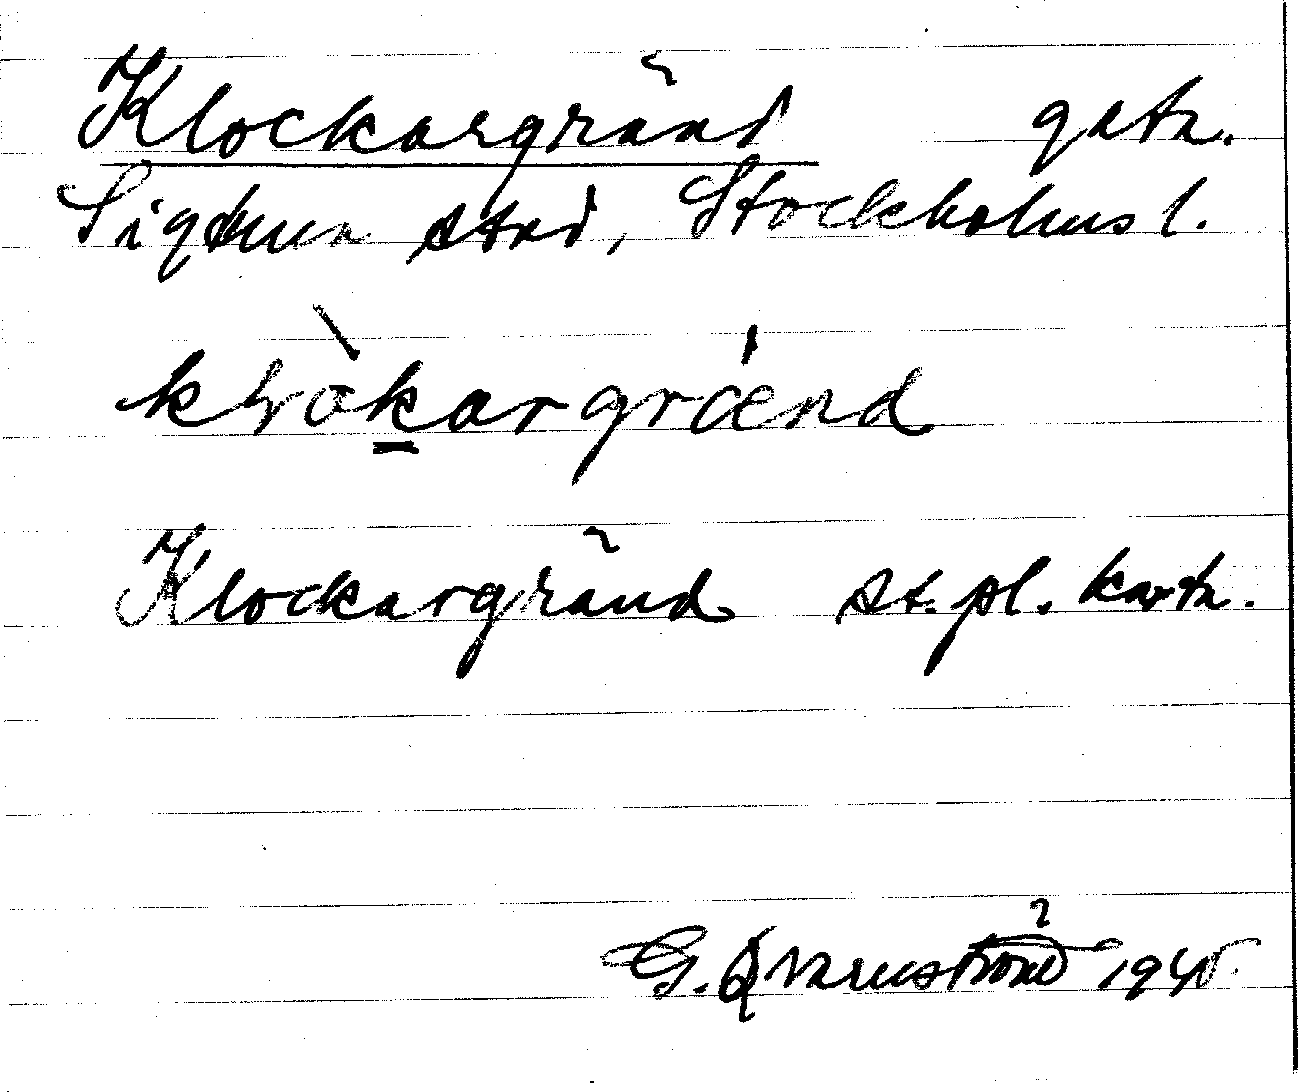 Klockargränd gatn.
Sigtuna stad, Stockholms l.
klòkargrǽnd
Klockargränd st.pl. kartn.
G. Qvarnström 1945.